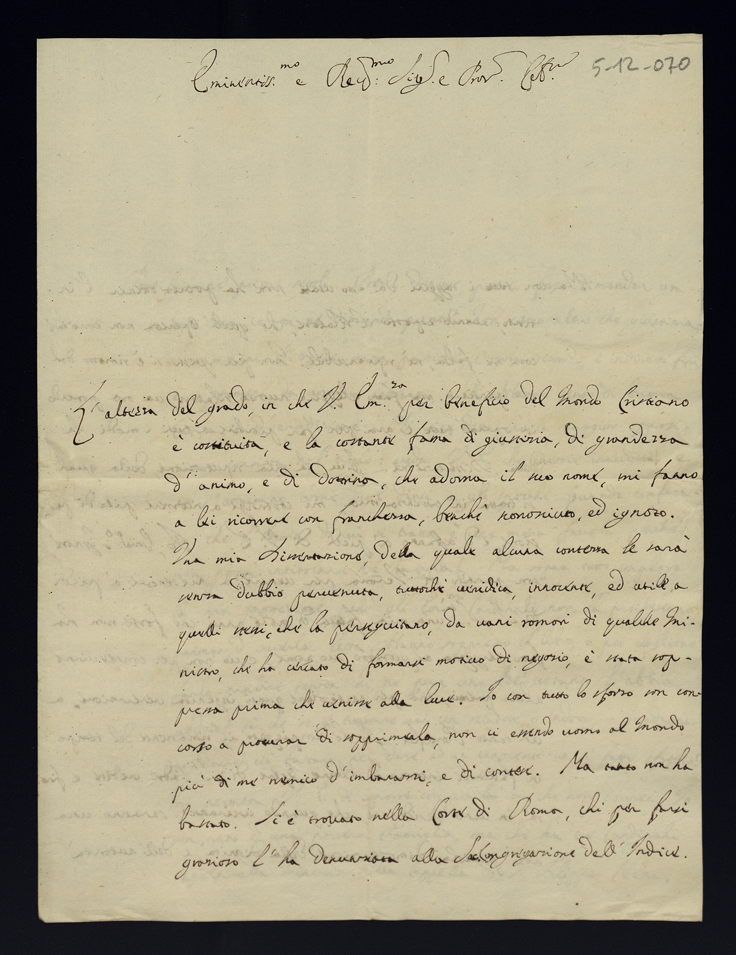 Eminentiss.mo e Rev.mo Sig.r e Pron.
5-12-070
L'altezza del grado, in che V. Em.za per beneficio del Mondo Cristiano
è costituita, e la costante fama di giustizia, di grandezza
d'animo, e di Dottrina, che adorna il suo nome, mi fanno
a lei ricorrere con franchezza, benchè sconosciuto, ed ignoto.
Una mia Dissertazione, della quale alcuna contezza le sarà
senza dubbio pervenuta, tuttochè veridica, innocente, ed utile a
quelli stessi, che la perseguitano, da vani romori di qualche Mi-
nistro, che ha cercato di formarsi motivo di negozio, è stata sop-
pressa prima che venisse alla luce. Io con tutto lo sforzo son con-
corso a procurar di sopprimerla, non ci essendo uomo al Mondo
più di me nemico d'imbarazzi, e di contese. Ma tanto non ha
bastato. Si è trovato nella Corte di Roma, chi per farsi
grazioso l'ha denunziata alla Congregazione dell'Indice.